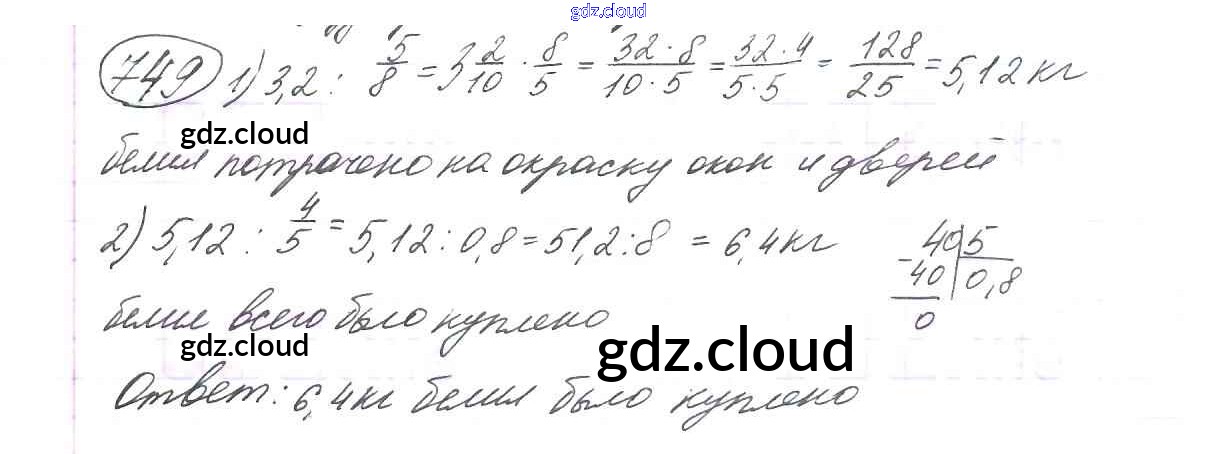 gdz.cloud
749 1) 3,2 : 5/8 = 3 2/10 · 8/5 = 32·8/10·5 = 32·4/5·5 = 128/25 = 5,12 кг
gdz.cloud
белил потрачено на окраску окон и дверей
2) 5,12 : 4/5 = 5,12 : 0,8 = 51,2 : 8 = 6,4 кг
40 5
- 40 0,8
0
белил всего было куплено
gdz.cloud
gdz.cloud
Ответ: 6,4 кг белил было куплено